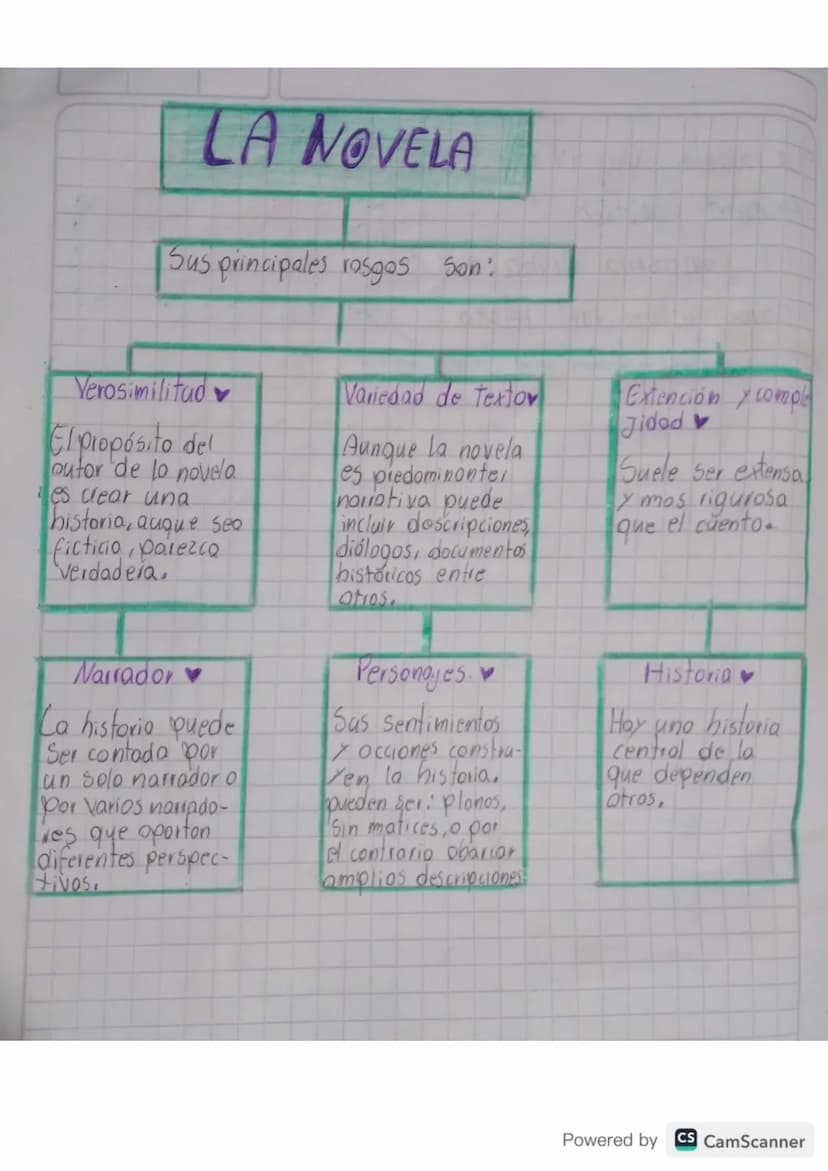 LA NOVELA
Sus principales rasgos son:
Verosimilitud ♥
El propósito del
autor de la novela
es crear una
historia, auque sea
ficticia, parezca
verdadera.
Variedad de Texto♥
Aunque la novela
es predominante,
narrativa puede
incluir descripciones,
diálogos, documentos
históricos entre
otros.
Extención y comple
jidad ♥
Suele ser extensa
y mas rigurosa
que el cuento.
Narrador ♥
La historia puede
Ser contada por
un solo narrador o
por varios narrado-
res que aportan
diferentes perspec-
tivas.
Personajes. ♥
Sus sentimientos
y acciones constru-
yen la historia.
pueden ser: planos,
sin matices, o por
el contrario abarcar
amplias descripciones.
Historia ♥
Hay una historia
central de la
que dependen
otros.
Powered by CS CamScanner